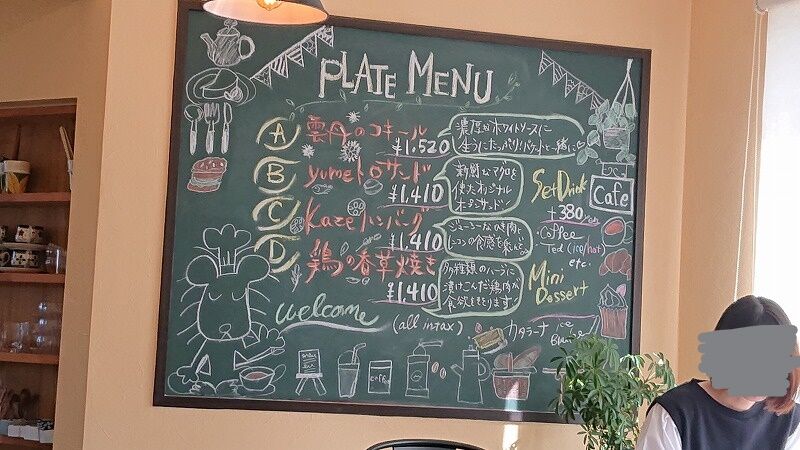 PLATE MENU
A 雲丹のコキール
¥1,520
濃厚なホワイトソースに
生うにたっぷり!バケットと一緒に♡
B yumeトロサンド
¥1,410
新鮮なマグロを
使たオリジナル
ホタンサンド♪
C Kazeハンバーグ
¥1,410
ジューシーなひき肉と
レンコンの食感を楽しむ。
D 鶏の香草焼き
¥1,410
多種類のハーブに
漬けこんだ鶏肉が
食欲をそそります
Cafe
Set Drink
+380
・Coffee
・Tea (ice/hot)
etc.
Mini
Dessert
welcome
(all in tax)
カタラーナ ice